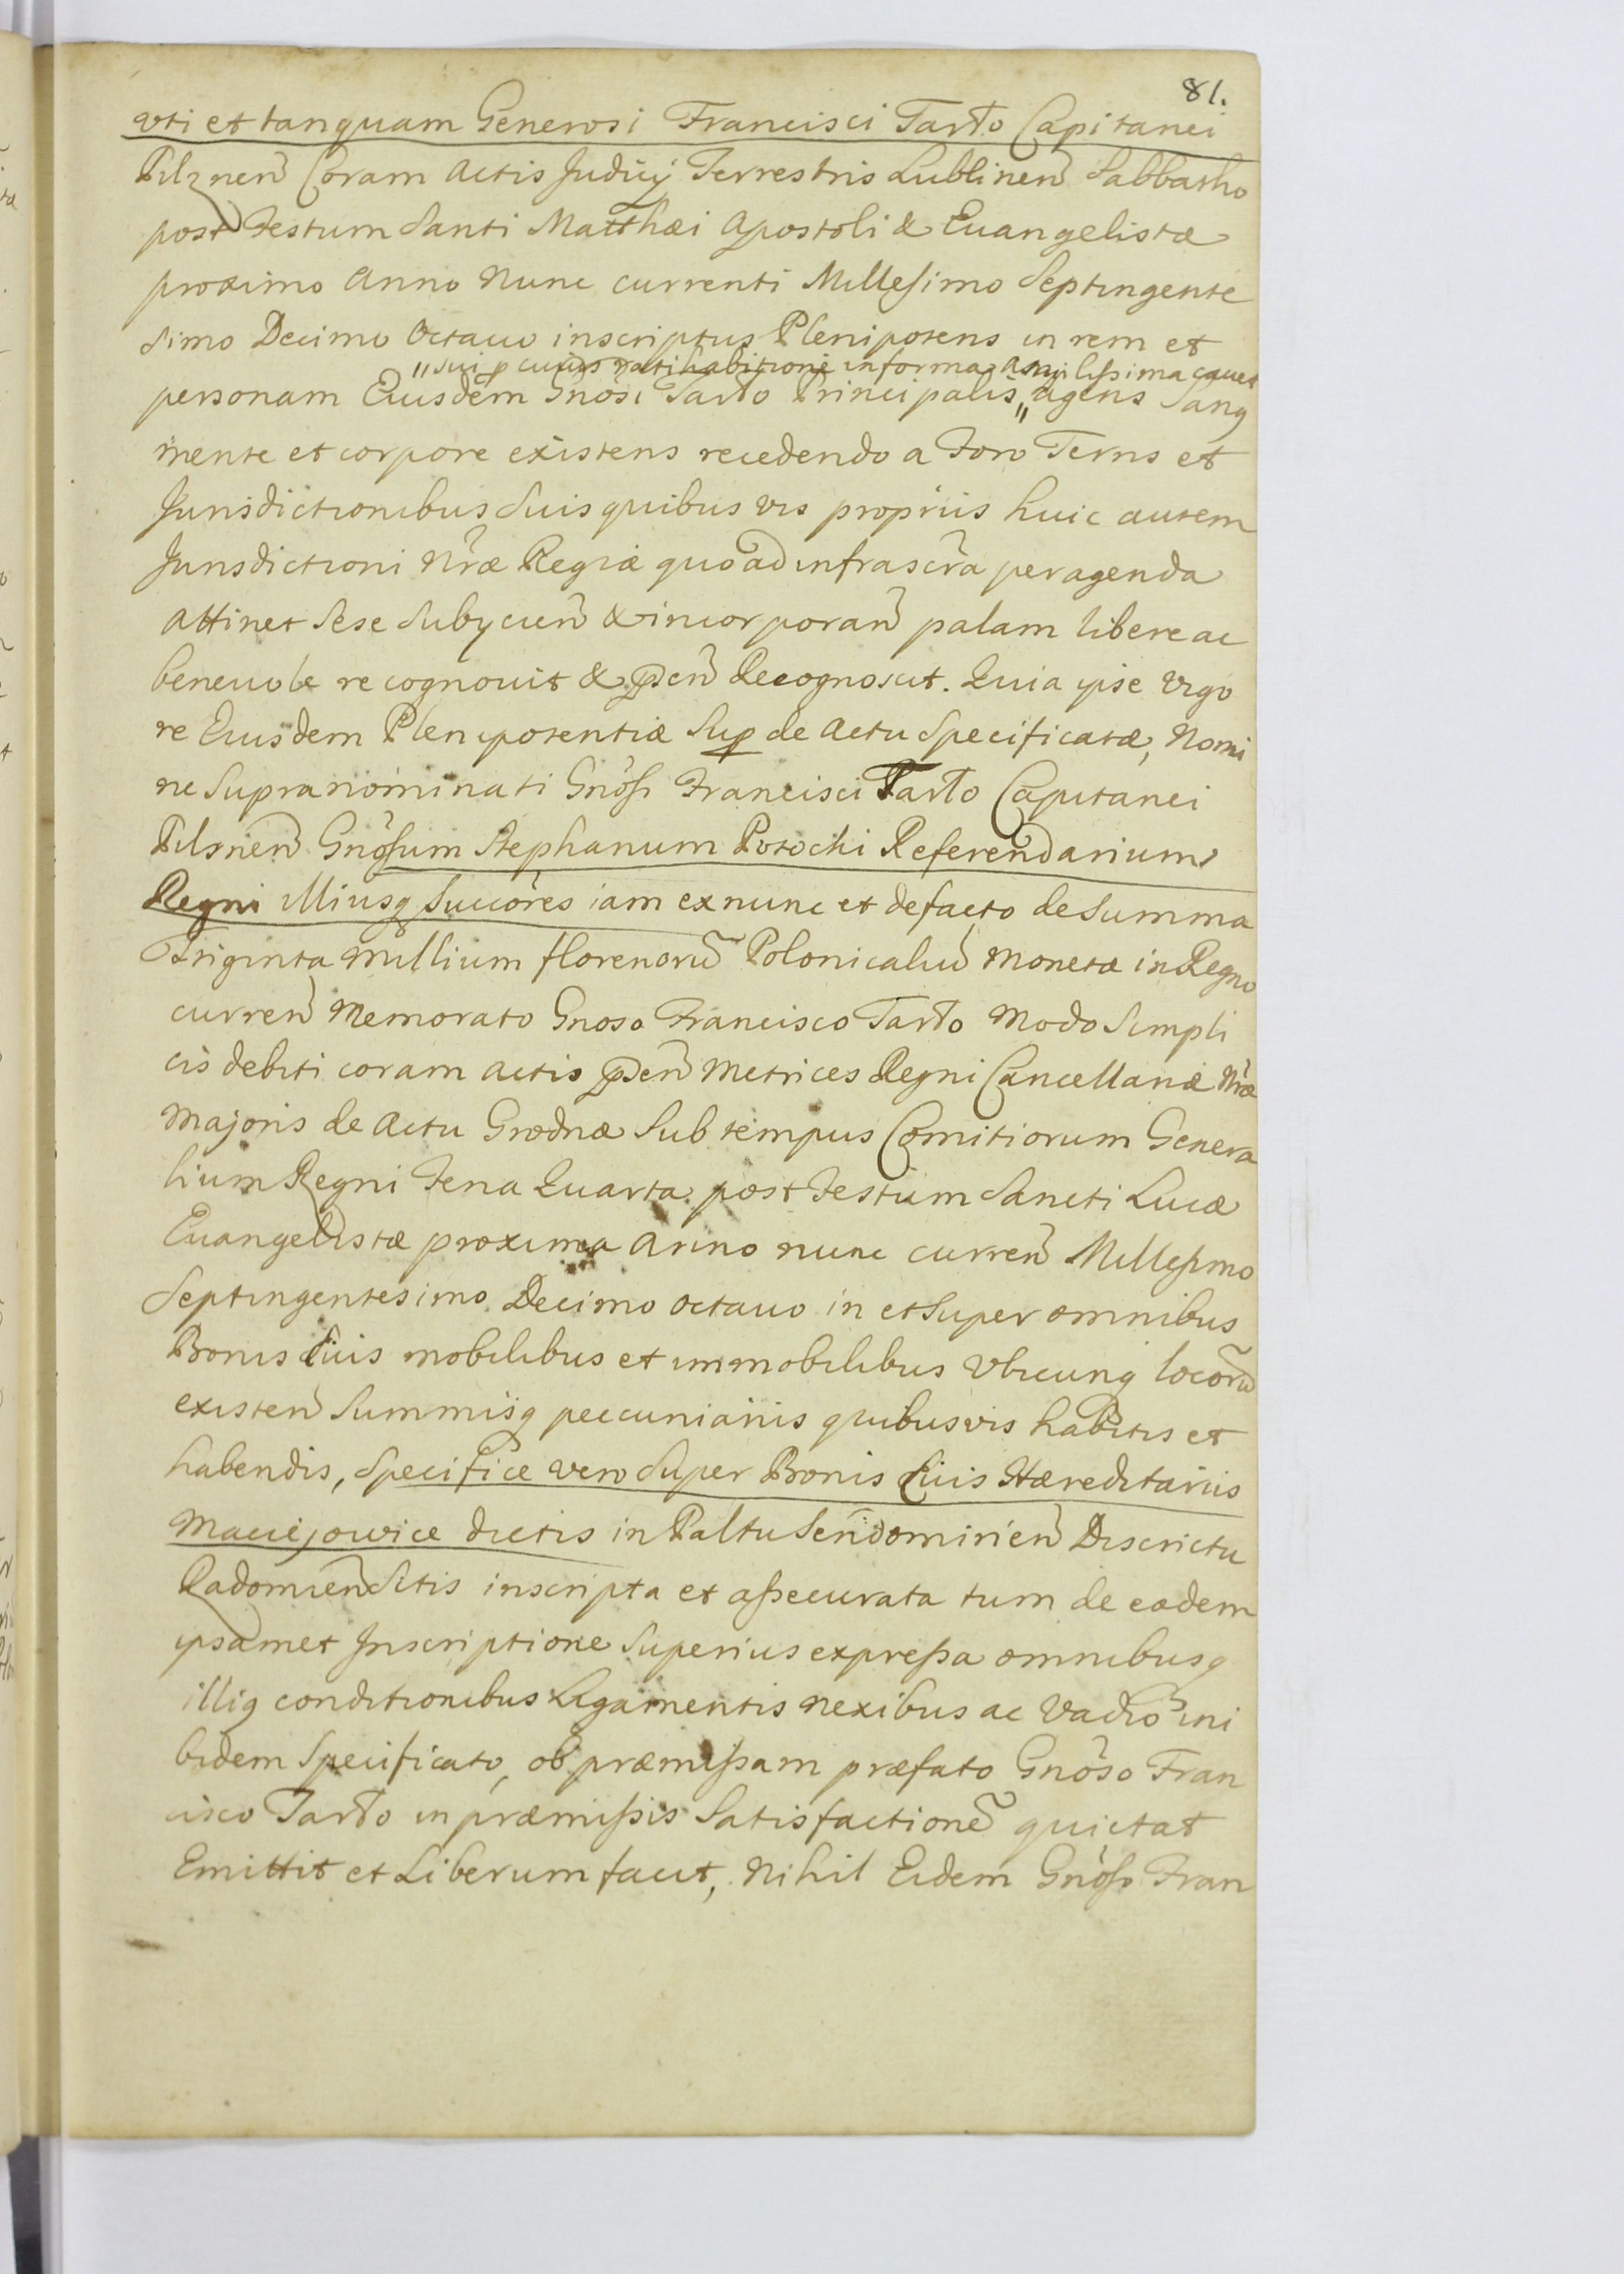 81.
vti et tanquam Generosi Francisci Tarło Capitanei
Pilznen̄ Coram Actis Judicÿ Terrestris Lublinen̄ Sabbatho
post Festum Santi Matthæi Apostoli & Euangelistæ
proximo Anno Nunc currenti Millesimo Septingente
simo Decimo Octauo inscriptus Plenipotens in rem et
" sui p cuius ratihabitione in forma ampliſsima cauet
personam Eiusdem Gnosi Tarło Principalis " agens Sang
mente et corpore existens recedendo a Foro Terris et
Jurisdictionibus Suis quibus vis proprijs huic autem
Jurisdictioni Nræ Regiæ quo ad infrascra peragenda
Attinet Sese Subÿcien̄ & incorporan̄ palam libere ac
beneuole recognouit & pden̄ Recognoscit. Quia ipse Vigo
re Eiusdem Plenipotentiæ Sup de Actu Specificatæ, Nomi
ne Supranominati Gnosi Francisci Tarło Capitanei
Pilsnen̄ Gnosum Stephanum Potocki Referendarium
Regni Illiusq Succores iam exnunc et defacto de Summa
Triginta Millium florenorū Polonicaliū Monetæ in Regno
curren̄ Memorato Gnoso Francisco Tarło Modo Simpli
cis debiti coram Actis pden̄ Metrices Regni Cancellariæ Nræ
Majoris de Actu Grodnæ Sub tempus Comitiorum Genera
lium Regni Feria Quarta post Festum Sancti Lucæ
Euangelistæ proxima Anno nunc curren̄ Millesimo
Septingentesimo Decimo octauo in et Super omnibus
Bonis Eius mobilibus et immobilibus Vbicunq locorū
existen̄ Summisq peccuniarijs quibusvis habitis et
habendis, Specifice vero Super Bonis Eius Hæreditarijs
Maciejowice dictis in Paltu Sendomirien̄ Districtu
Radomien̄ Sitis inscripta et aſsecurata tum de eadem
ipsamet Inscriptione Superius expreſsa omnibusq
illiq conditionibus Ligamentis nexibus ac Vadio ini
bidem Specificato, ob præmiſsam præfato Gnoso Fran
cisco Tarło in præmiſsis Satisfactionē quietat
Emittit et Liberum facit, Nihil Eidem Gnoso Fran